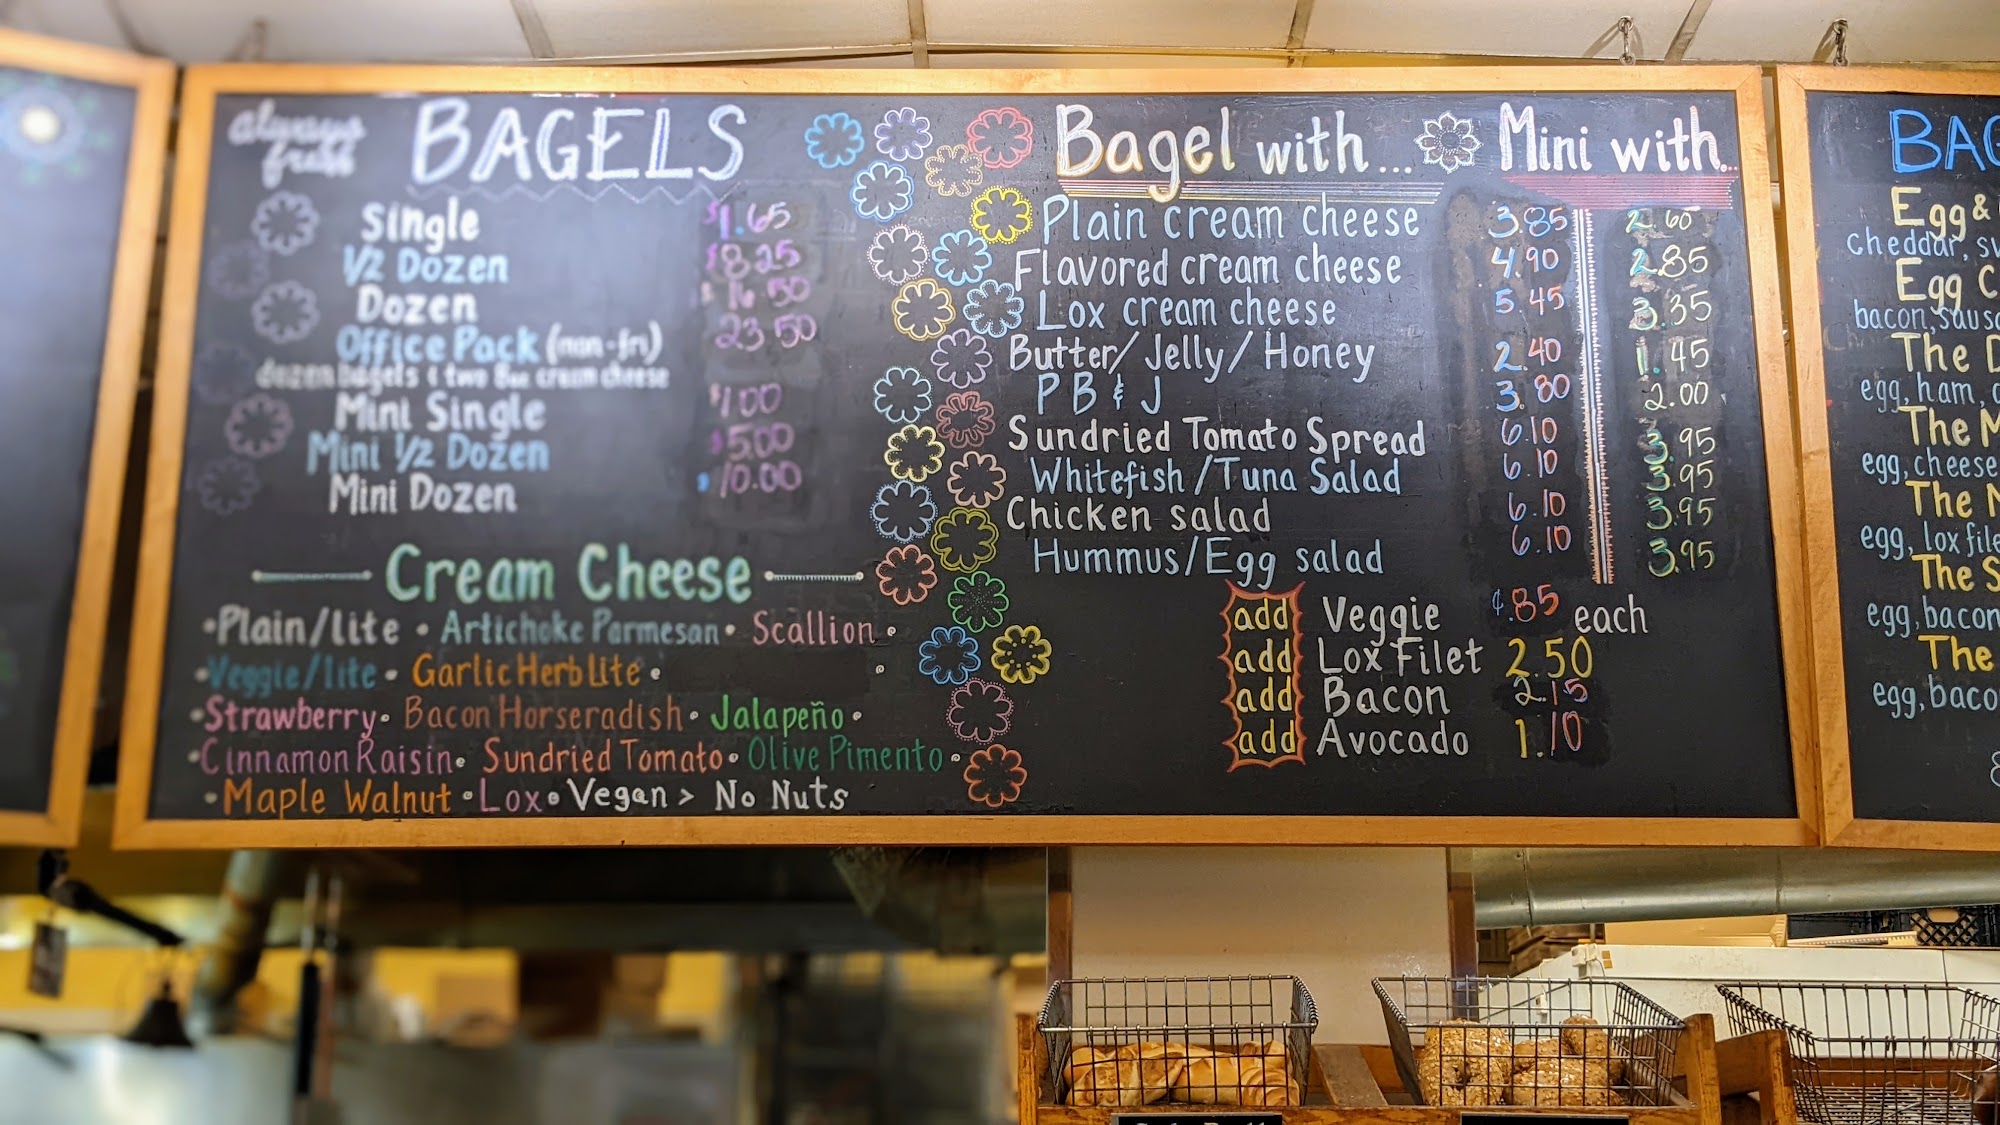 always
fresh
BAGELS
Single $1.65
1/2 Dozen $8.25
Dozen $16.50
Office Pack (mon-fri) 23.50
dozen bagels & two 8oz cream cheese
Mini Single $1.00
Mini 1/2 Dozen $5.00
Mini Dozen $10.00
Cream Cheese
•Plain/lite • Artichoke Parmesan • Scallion •
•Veggie/lite • Garlic Herb Lite •
•Strawberry • Bacon Horseradish • Jalapeño •
•Cinnamon Raisin • Sundried Tomato • Olive Pimento •
•Maple Walnut • Lox • Vegan > No Nuts
Bagel with... Mini with...
Plain cream cheese 3.85 2.60
Flavored cream cheese 4.90 2.85
Lox cream cheese 5.45 3.35
Butter/Jelly/Honey 2.40 1.45
PB & J 3.80 2.00
Sundried Tomato Spread 6.10 3.95
Whitefish/Tuna Salad 6.10 3.95
Chicken salad 6.10 3.95
Hummus/Egg salad 6.10 3.95
add Veggie ¢.85 each
add Lox Filet 2.50
add Bacon 2.15
add Avocado 1.10
Egg &
cheddar,
Egg
bacon,
The
egg, ham,
The
egg, cheese
The
egg, lox
The
egg, bacon
The
egg,